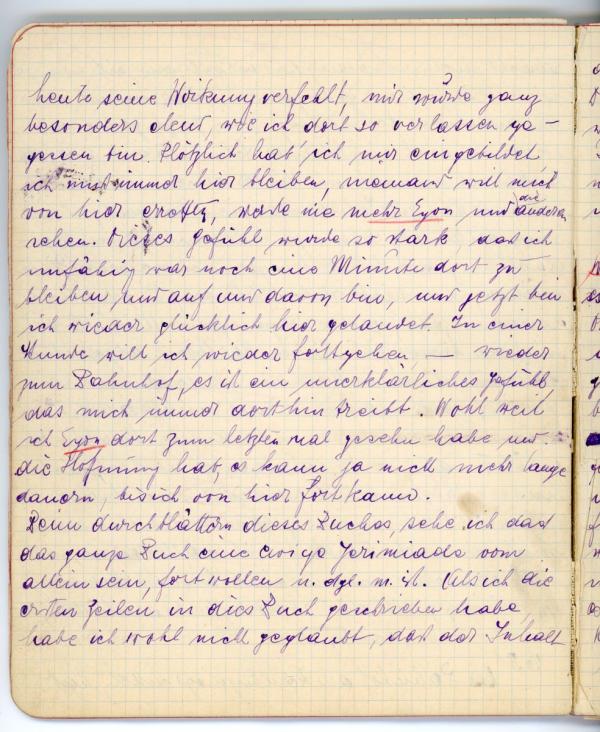 heute seine Wirkung verfehlt, mir wurde ganz
besonders elend, wie ich dort so verlassen ge-
sessen bin. Plötzlich hab' ich mir eingebildet
ich muss immer hier bleiben, niemand will mich
von hier erretten, werde nie mehr Egon und die anderen
sehen. Dieses Gefühl wurde so stark, dass ich
unfähig war noch eine Minute dort zu
bleiben und auf und davon bin, und jetzt bin
ich wieder glücklich hier gelandet. In einer
Stunde will ich wieder fortgehen — wieder
zum Bahnhof, es ist ein unerklärliches Gefühl
das mich immer dorthin treibt. Wohl weil
ich Egon dort zum letzten mal gesehn habe und
die Hofnung hab, es kann ja nicht mehr lange
dauern, bis ich von hier fort kann.
Beim durchblättern dieses Buches, sehe ich dass
das ganze Buch eine ewige Jerimiade vom
allein sein, fort wollen u. dgl. m. ist. Als ich die
ersten Zeilen in dies Buch geschrieben habe,
habe ich wohl nicht geglaubt, dass der Inhalt